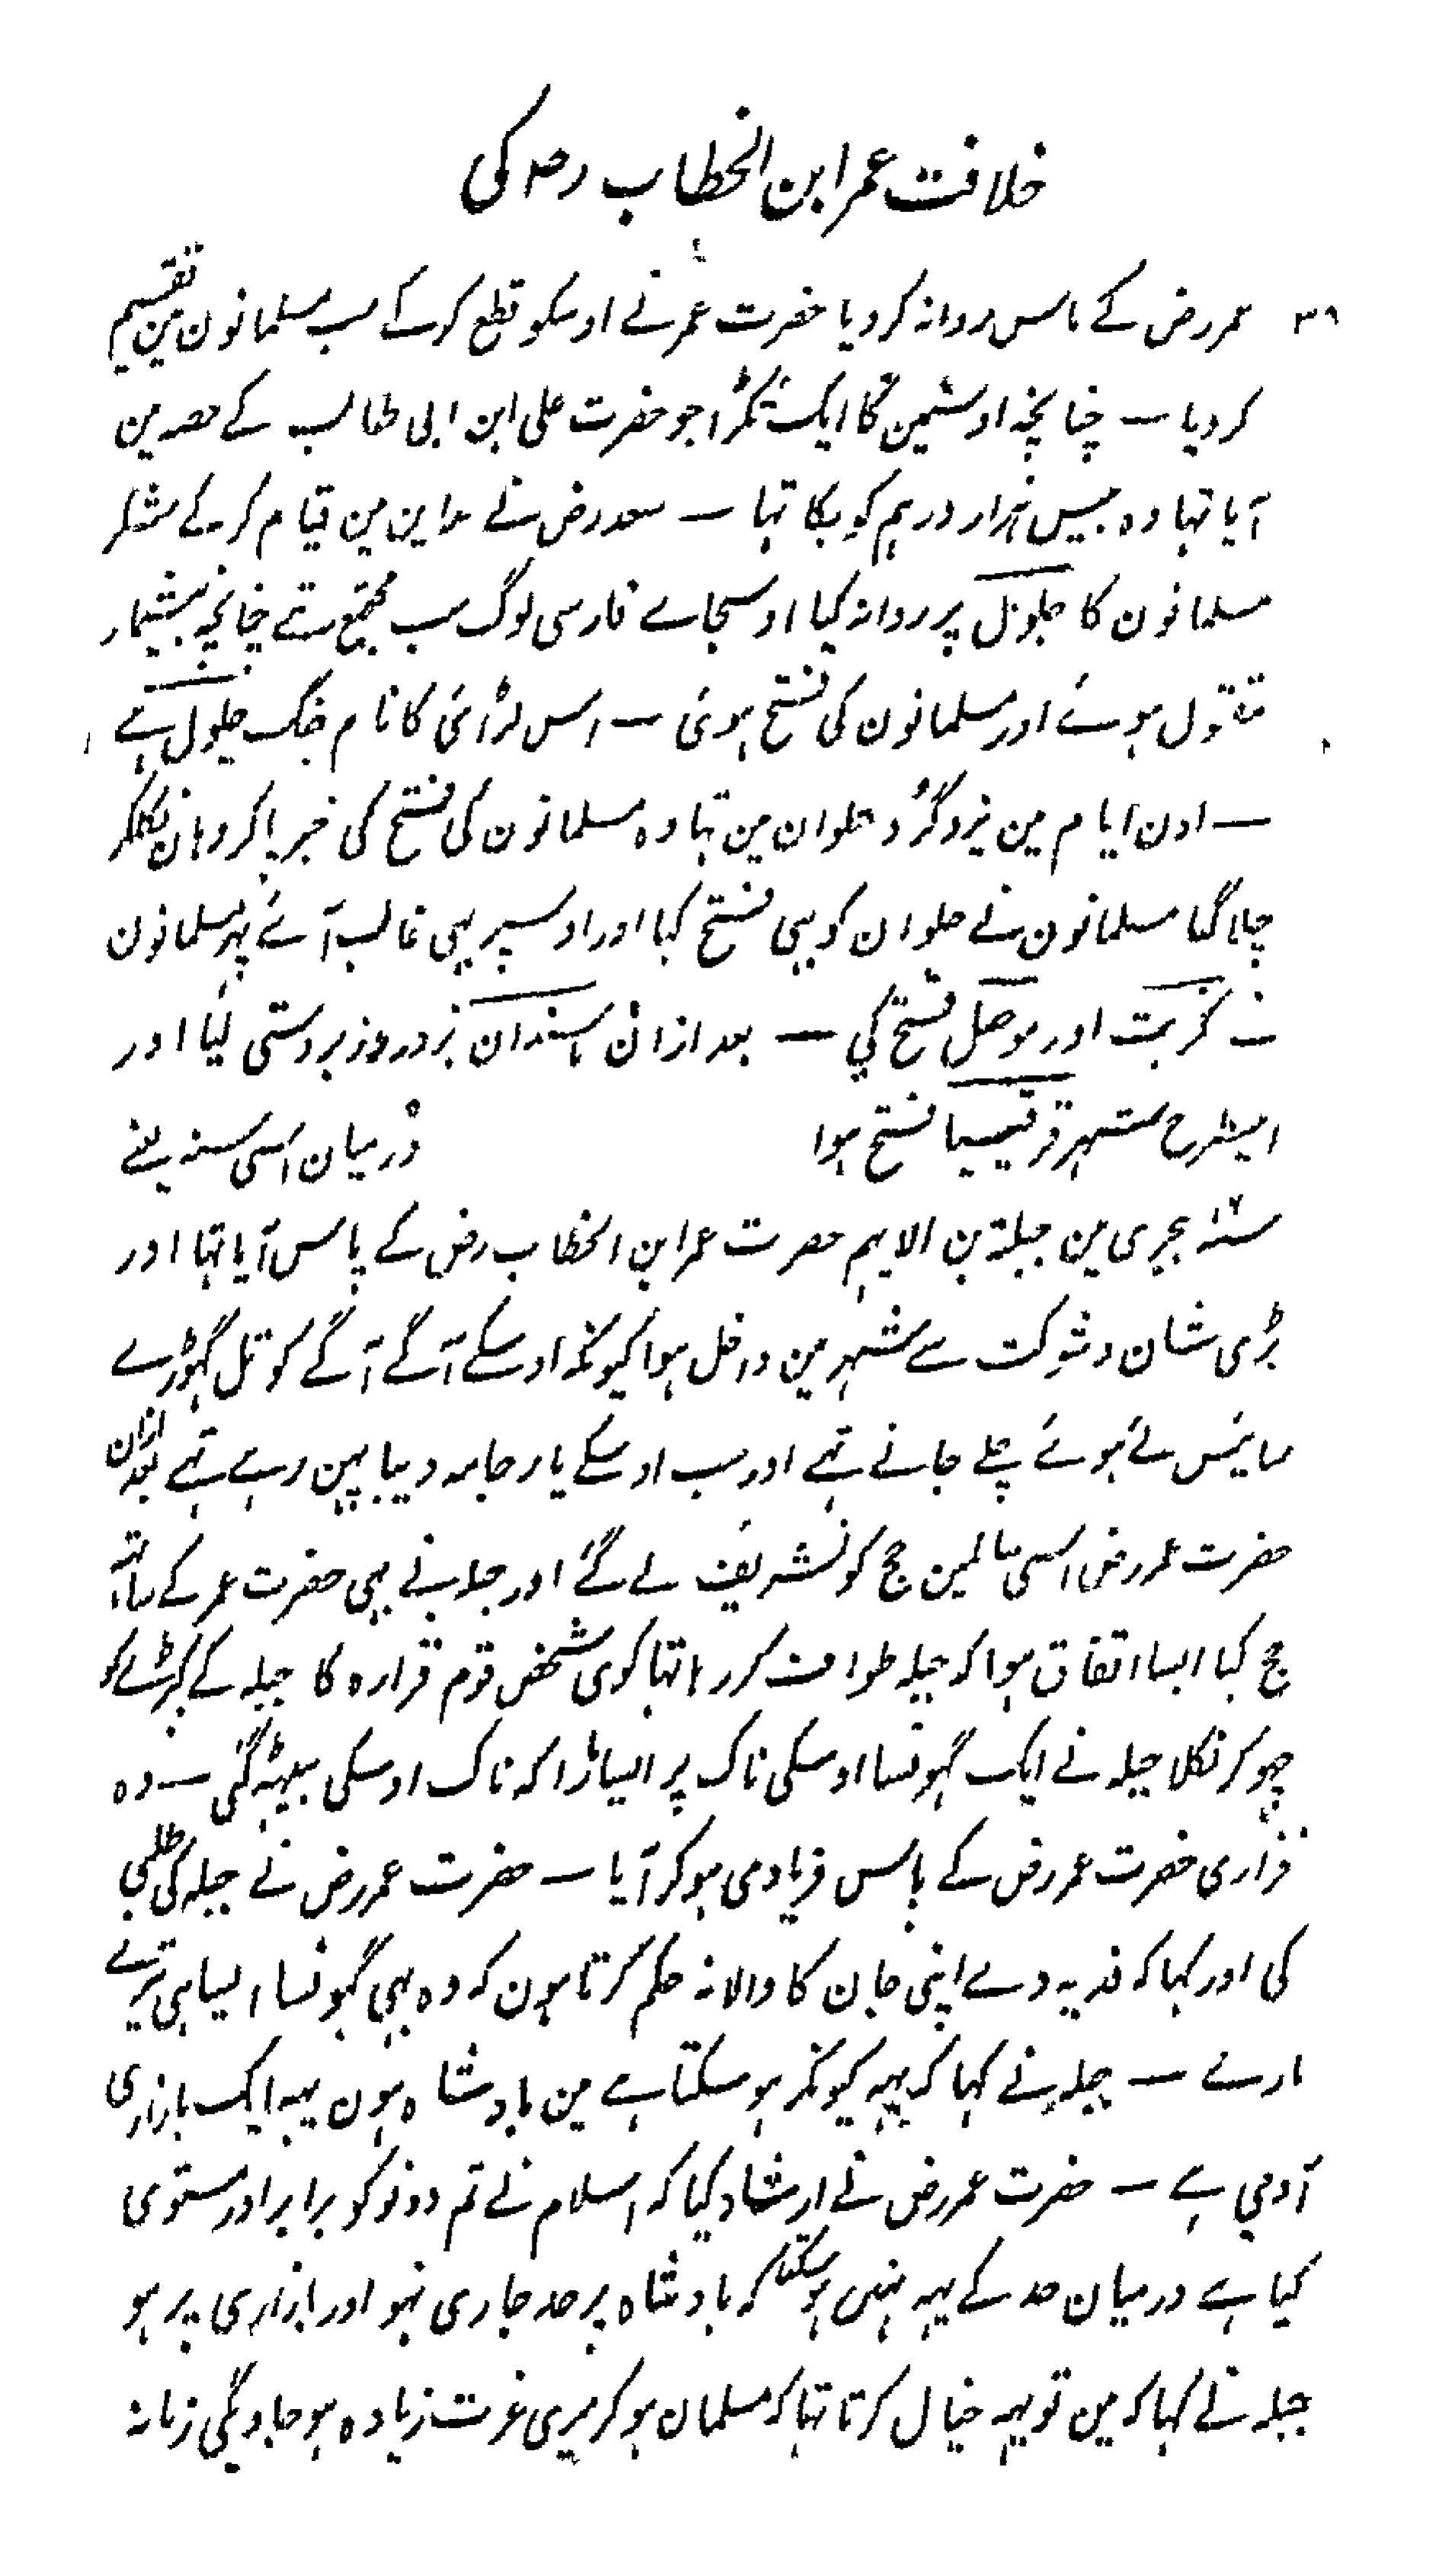 خلافت عمر ابن الخطاب رضہ کی
۳۹ عمر رض کے پاس روانہ کر دیا حضرت عمر نے اوسکو قطع کر کے سب مسلمانون مین تقسیم
کر دیا — چنانچہ اوسمین کا ایک ٹکڑا جو حضرت علی ابن ابی طالب کے حصہ مین
آیا تہا وہ بیس ہزار درہم کو بکا تہا — سعد رض نے مداین مین قیام کر کے لشکر
مسلمانون کا جلولا پر روانہ کیا اوسجاے فارسی لوگ سب مجتمع تہے چنانچہ بیشمار
مقتول ہوئے اور مسلمانون کی فتح ہوئی — اس لڑائی کا نام جنگ جلول ہے
— اون ایام مین یزدگرد حلوان مین تہا وہ مسلمانون کی فتح کی خبر پاکر وہان نکلکر
چلا گیا مسلمانون نے حلوان کو بہی فتح کیا اور اوسپر بہی غالب آئے پہر مسلمانون
نے تکریت اور موصل فتح کی — بعد ازان ماسندان بزور و زبردستی لیا اور
اسیطرح شہر قرقیسیا فتح ہوا درمیان اسی سنہ یعنے
سنہ ۱۶ ہجری مین جبلۃ بن الایہم حضرت عمر ابن الخطاب رض کے پاس آیا تہا اور
بڑی شان و شوکت سے شہر مین داخل ہوا کیونکہ اوسکے آگے آگے کوتل گہوڑے
سائیس لئے ہوئے چلے جاتے تہے اور سب اوسکے یار جامہ دیبا پہن رہے تہے بعد ازان
حضرت عمر رض اسی سالمین حج کو تشریف لے گئے اور جبلہ نے بہی حضرت عمر کے ساتہ
حج کیا ایسا اتفاق ہوا کہ جبلہ طواف کر رہا تہا کوی شخص قوم فزارہ کا جبلہ کے کپڑے کو
چہو کر نکلا جبلہ نے ایک گہونسا اوسکی ناک پر ایسا مارا کہ ناک اوسکی بیٹہہ گئی — وہ
فزاری حضرت عمر رض کے پاس فریادی ہو کر آیا — حضرت عمر رض نے جبلہ کی طلبی
کی اور کہا کہ فدیہ دے اپنی جان کا والا نہ حکم کرتا ہون کہ وہ بہی گہونسا ایسا ہی تیرے
مارے — جبلہ نے کہا کہ یہہ کیونکر ہو سکتا ہے مین بادشاہ ہون یہہ ایک بازاری
آدمی ہے — حضرت عمر رض نے ارشاد کیا کہ اسلام نے تم دونو کو برابر اور مستوی
کیا ہے درمیان حد کے یہہ نہین ہو سکتا کہ بادشاہ پر حد جاری نہو اور بازاری پر ہو
جبلہ نے کہا کہ مین تو یہہ خیال کرتا تہا کہ مسلمان ہو کر میری عزت زیادہ ہو جاویگی زمانہ